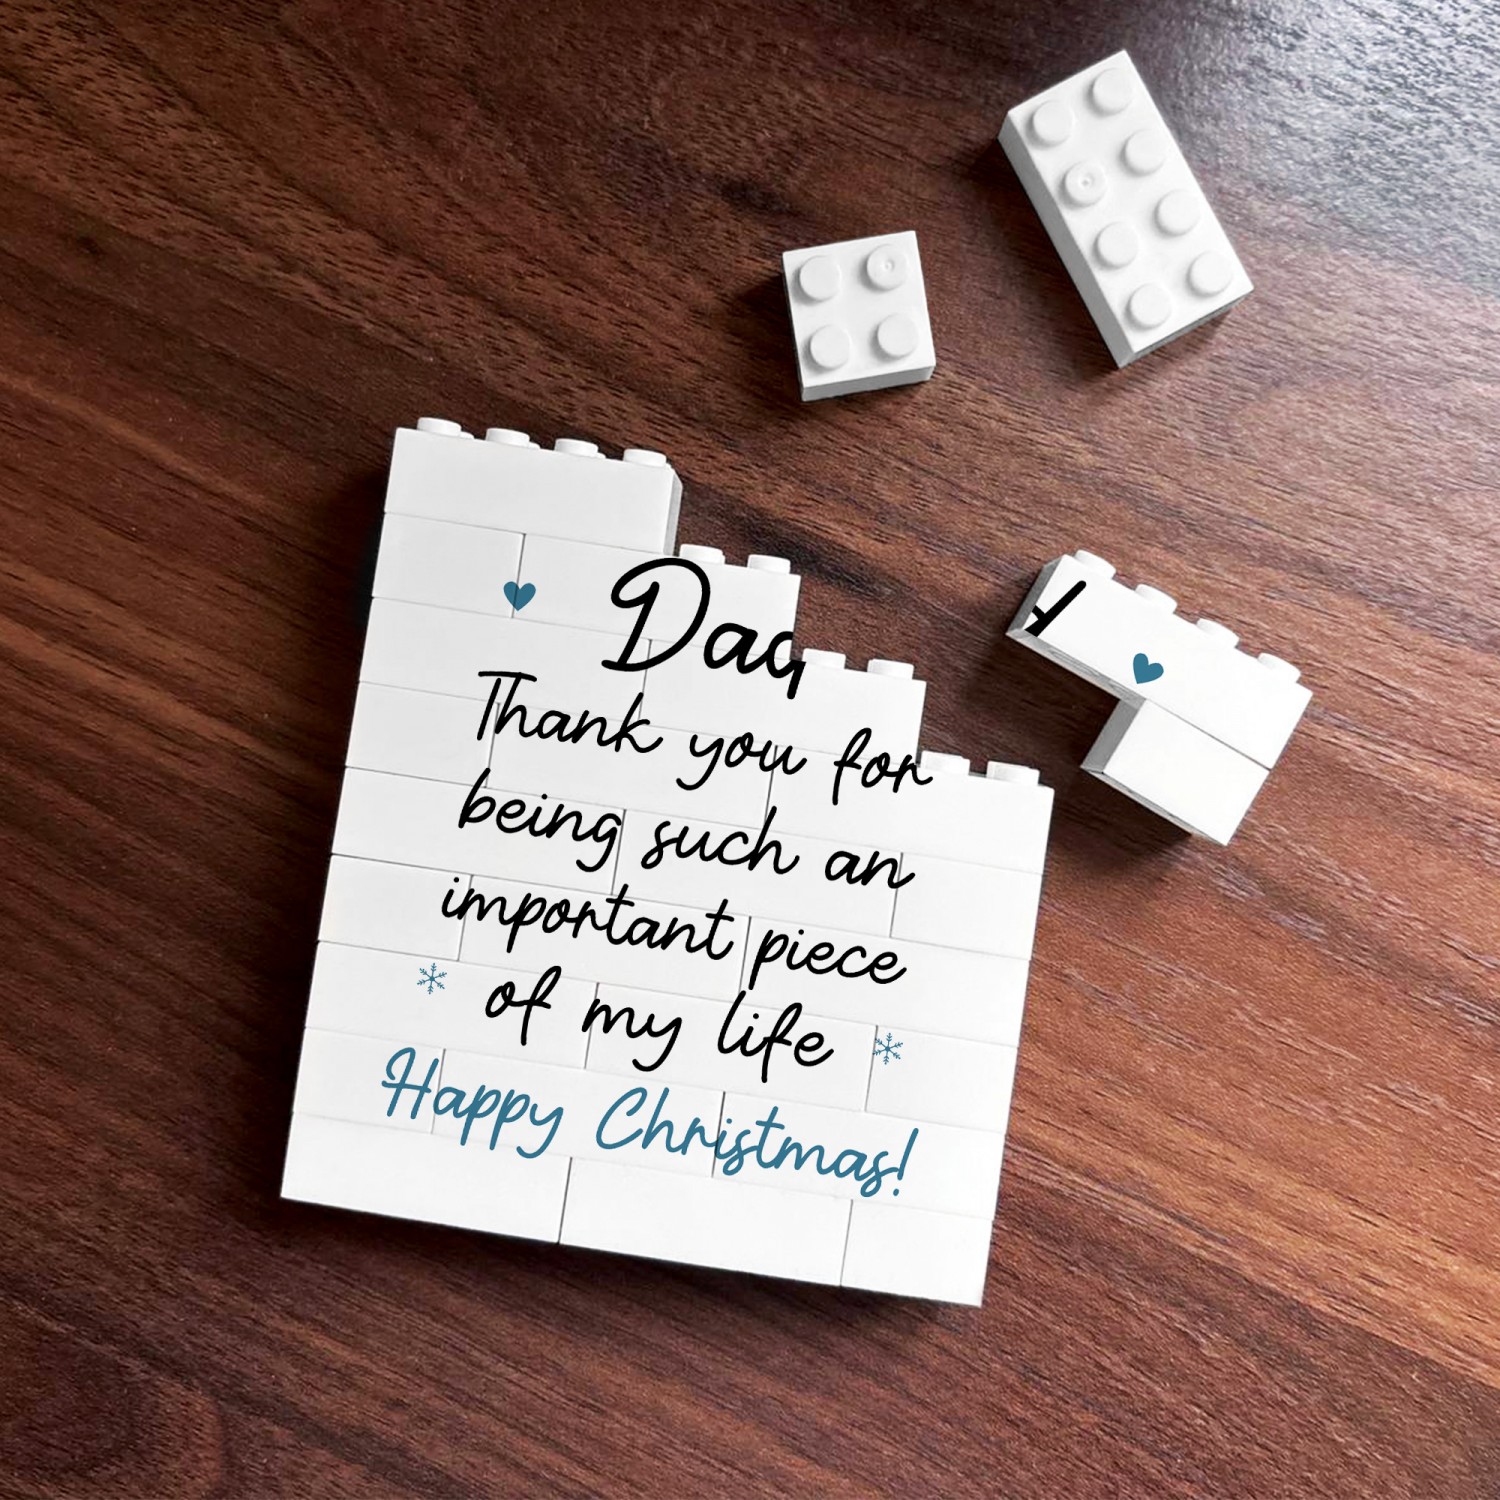 Dad
Thank you for
being such an
important piece
of my life
Happy Christmas!